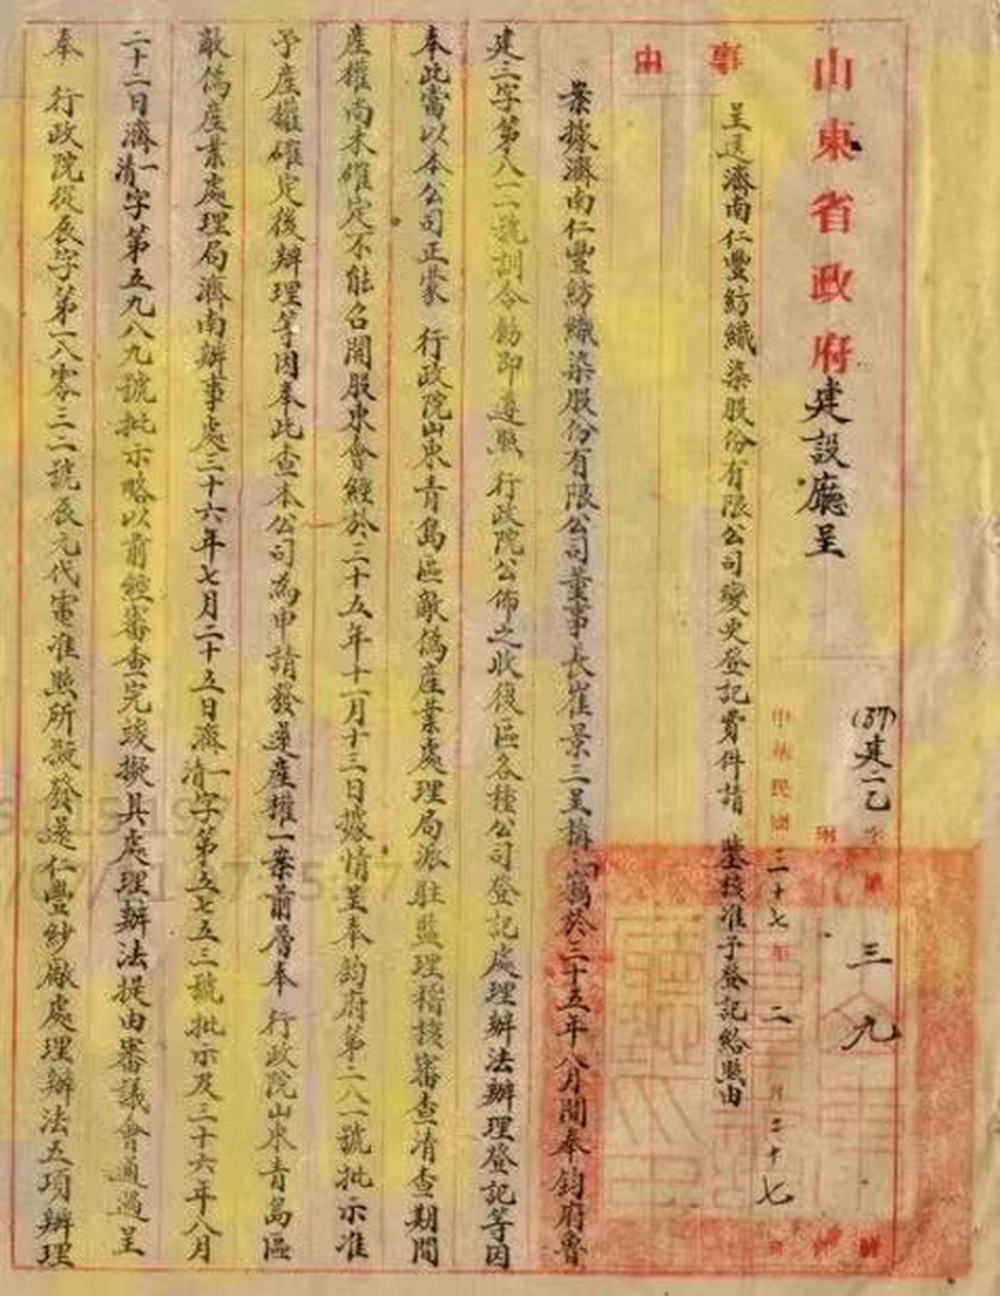 山東省政府建設廳呈
(37)建二乙字第三九號
中華民國三十七年二月二十七日
事由
呈送濟南仁豐紡織染股份有限公司變更登記費件請 鑒核准予登記給照由
案據濟南仁豐紡織染股份有限公司董事長崔景三呈稱竊於三十五年八月間奉鈞府魯
建二字第八一二號訓令飭即遵照 行政院公佈之收復區各種公司登記處理辦法辦理登記等因
奉此當以本公司正蒙 行政院山東青島區敵偽產業處理局派駐監理稽核審查清查期間
產權尚未確定不能召開股東會經於三十五年十一月十三日據情呈奉鈞府第二八一號批示准
予產權確定後辦理等因奉此查本公司為申請發還產權一案前層奉 行政院山東青島區
敵偽產業處理局濟南辦事處三十六年七月二十五日濟清一字第五七五三號批示及三十六年八月
二十二日濟清一字第五九八九號批示略以前經審查完竣擬具處理辦法提由審議會通過呈
奉 行政院從辰字第一八零三二號辰元代電准照所擬發還仁豐紗廠處理辦法五項辦理